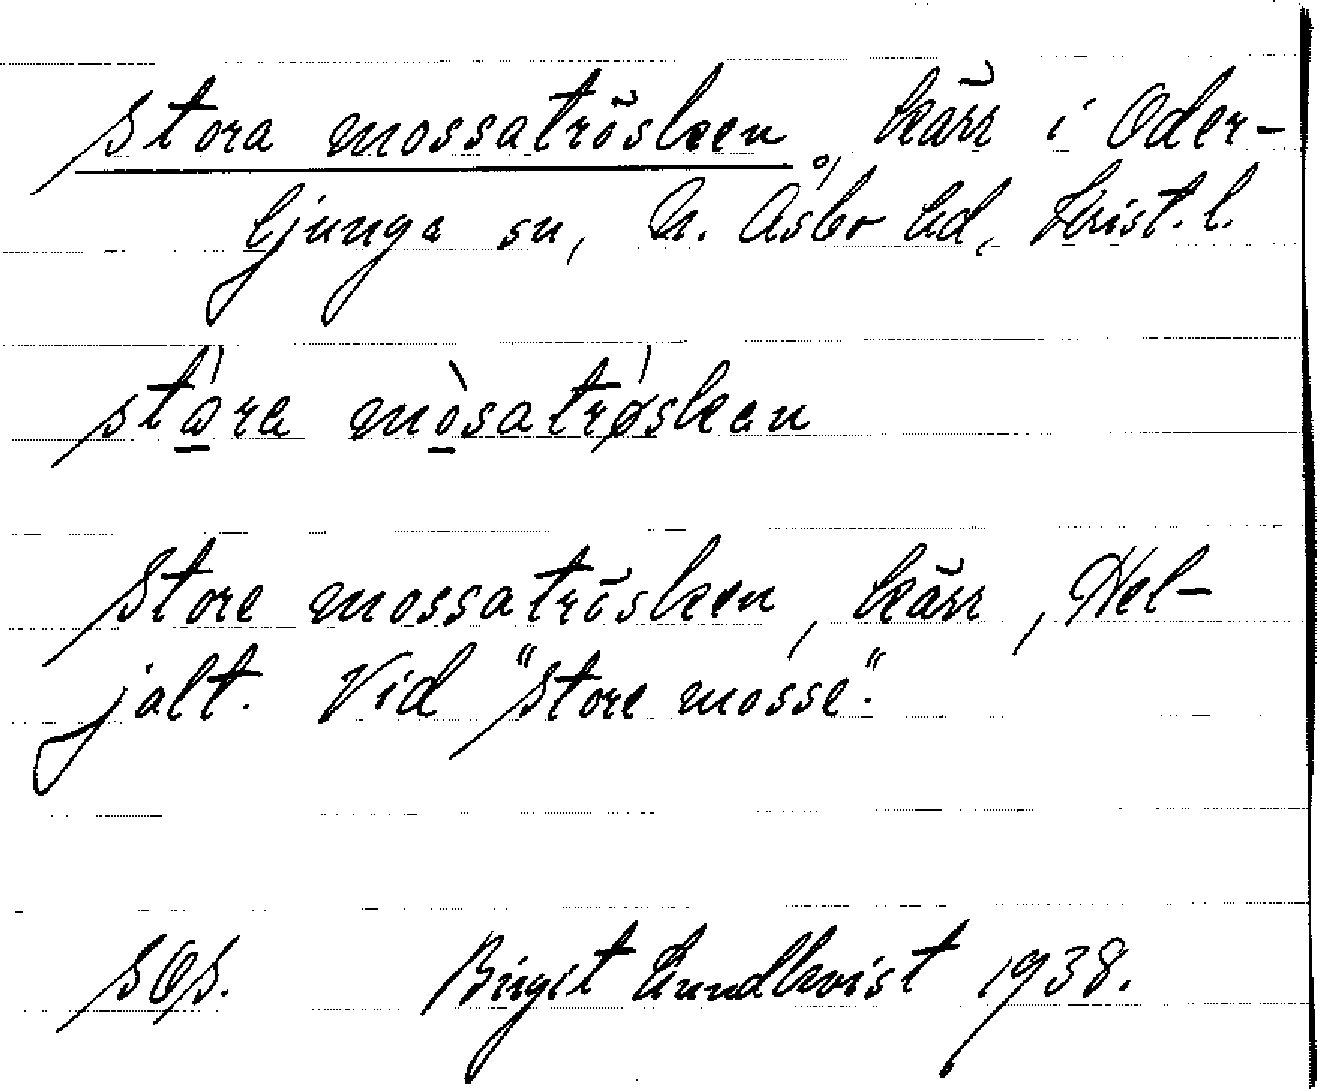 Stora mossatrösken, kärr i Oder-
ljunga sn, N. Åsbo hd, Krist. l.
stǫ́ra mǫ̀satrǿskan
Store mossatrösken, kärr, Hel-
jalt. Vid "Store mosse".
SOS. Birgit Lundkvist 1938.